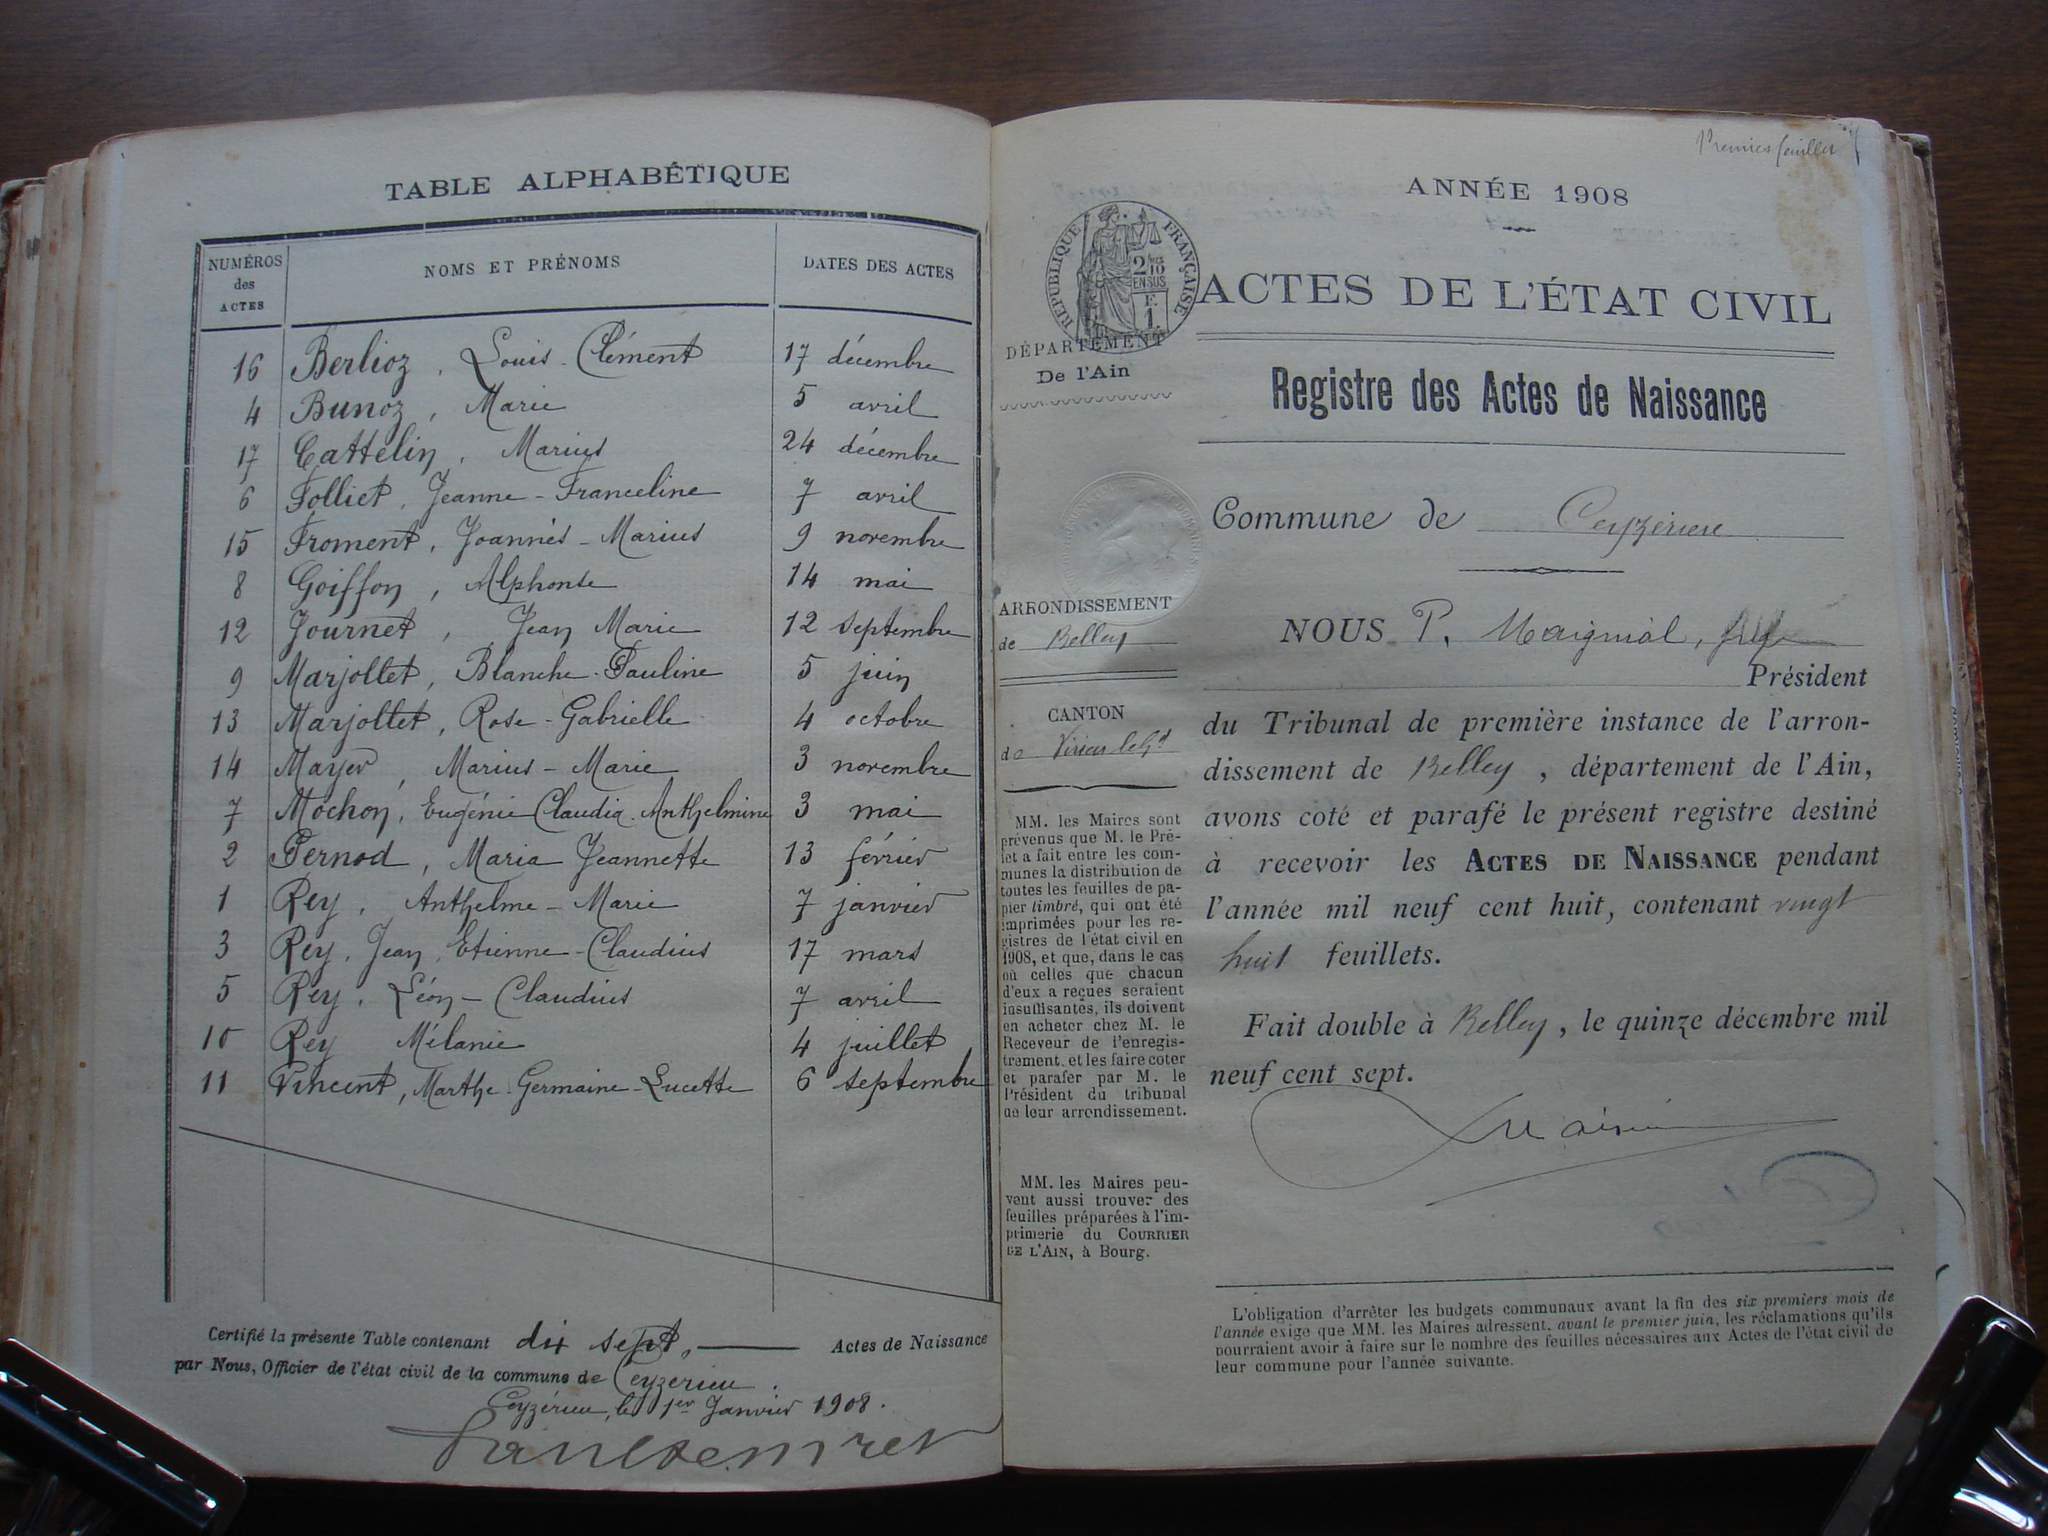 TABLE ALPHABÉTIQUE
NUMÉROS des ACTES NOMS ET PRÉNOMS DATES DES ACTES
16 Berlioz, Louis-Clément 17 décembre
4 Bunoz, Marie 5 avril
17 Cattelin, Marius 24 décembre
6 Folliet, Jeanne-Franceline 7 avril
15 Froment, Joannès-Marius 9 novembre
8 Goiffon, Alphonse 14 mai
12 Journet, Jean Marie 12 septembre
9 Marjollet, Blanche-Pauline 5 juin
13 Marjollet, Rose-Gabrielle 4 octobre
14 Mayer, Marius-Marie 3 novembre
7 Mochon, Eugénie Claudia-Anthelmine 3 mai
2 Pernod, Maria Jeannette 13 février
1 Rey, Anthelme-Marie 7 janvier
3 Rey, Jean, Etienne-Claudius 17 mars
5 Rey, Léon-Claudius 7 avril
10 Rey Mélanie 4 juillet
11 Vincent, Marthe-Germaine-Lucette 6 septembre
Certifié la présente Table contenant dix sept, Actes de Naissance
par Nous, Officier de l'état civil de la commune de Ceyzerieu.
Ceyzérieu, le 1er Janvier 1908.
Premier feuillet
ANNÉE 1908
RÉPUBLIQUE FRANÇAISE
2/10 EN SUS
F. 1.
ACTES DE L'ÉTAT CIVIL
DÉPARTEMENT
De l'Ain
Registre des Actes de Naissance
Commune de Ceyzérieu
ARRONDISSEMENT
de Belley
CANTON
de Virieu le Gd
MM. les Maires sont
prévenus que M. le Pré-
fet a fait entre les com-
munes la distribution de
toutes les feuilles de pa-
pier timbré, qui ont été
imprimées pour les re-
gistres de l'état civil en
1908, et que, dans le cas
où celles que chacun
d'eux a reçues seraient
insuffisantes, ils doivent
en acheter chez M. le
Receveur de l'enregis-
trement, et les faire coter
et parafer par M. le
Président du tribunal
de leur arrondissement.
MM. les Maires peu-
vent aussi trouver des
feuilles préparées à l'im-
primerie du COURRIER
DE L'AIN, à Bourg.
NOUS P. Maignial,
Président
du Tribunal de première instance de l'arron-
dissement de Belley, département de l'Ain,
avons coté et parafé le présent registre destiné
à recevoir les ACTES DE NAISSANCE pendant
l'année mil neuf cent huit, contenant vingt
huit feuillets.
Fait double à Belley, le quinze décembre mil
neuf cent sept.
L'obligation d'arrêter les budgets communaux avant la fin des six premiers mois de
l'année exige que MM. les Maires adressent, avant le premier juin, les réclamations qu'ils
pourraient avoir à faire sur le nombre des feuilles nécessaires aux Actes de l'état civil de
leur commune pour l'année suivante.